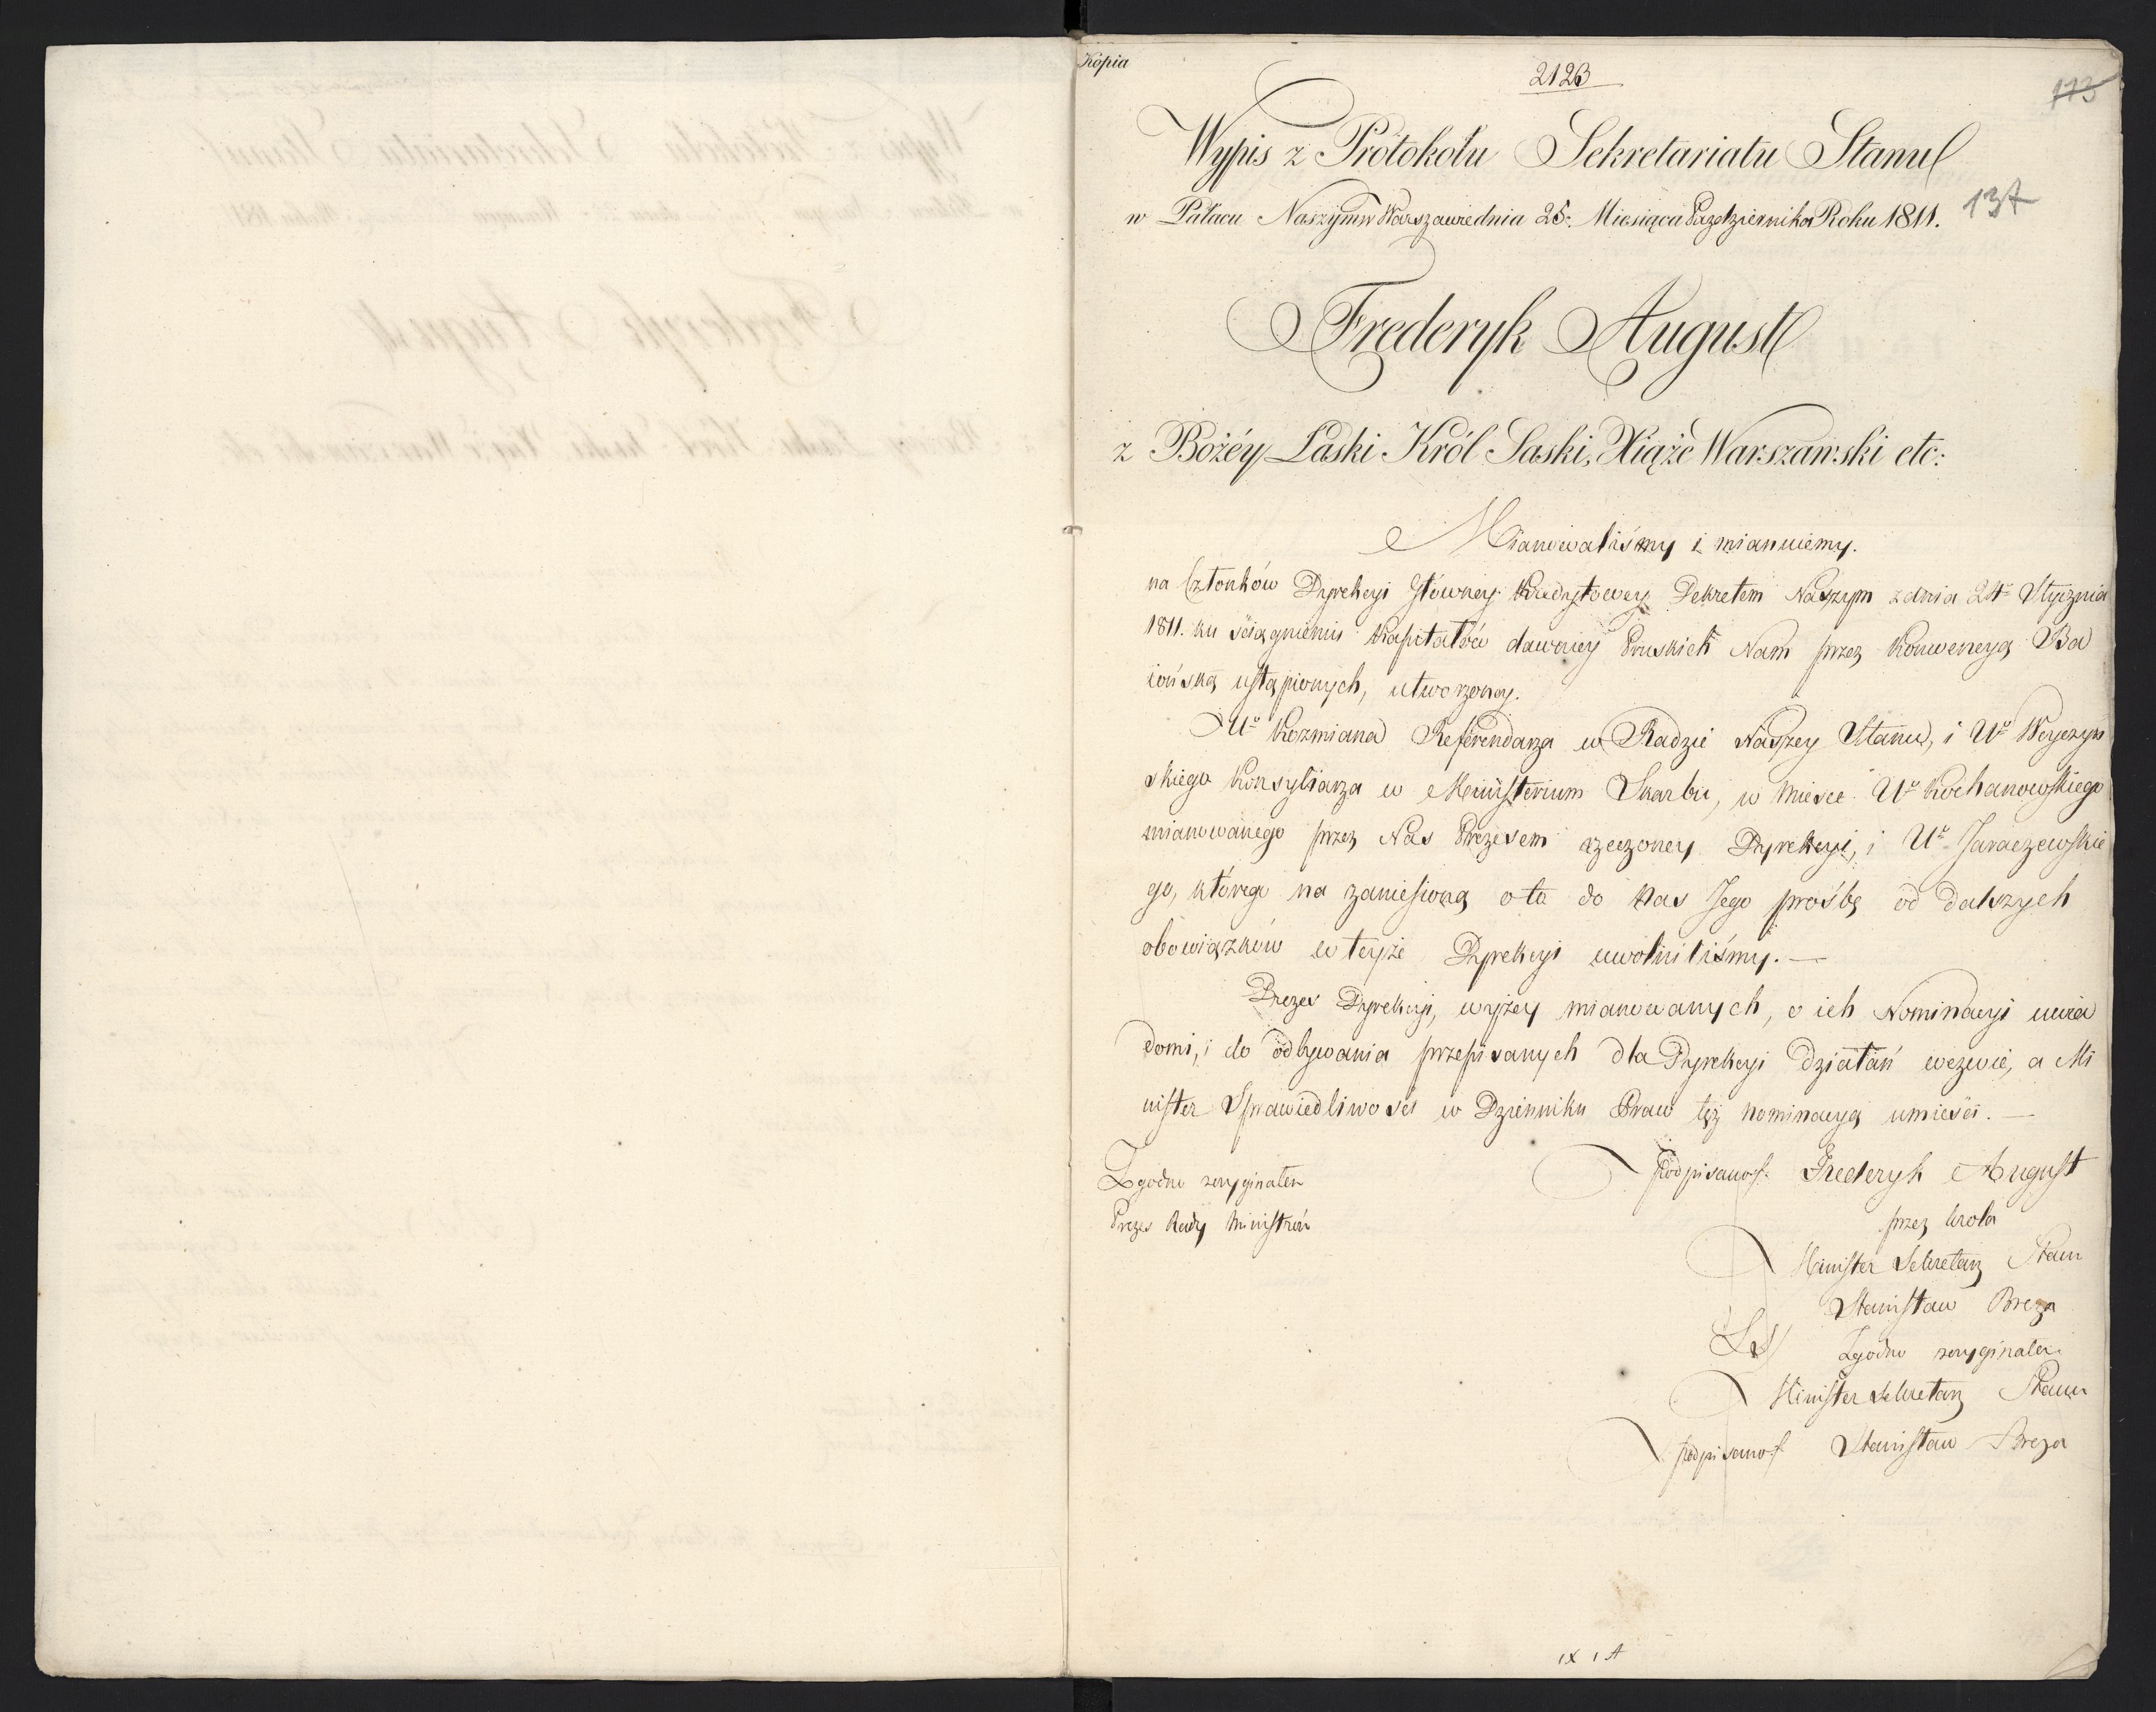 Kopia
2123
113
Wypis z Protokołu Sekretariatu Stanu
w Pałacu Naszym w Warszawie dnia 25. Miesiąca Października Roku 1811.
137
Frederyk August
z Bożéy Łaski Król Saski, Xiąże Warszawski etc:
Mianowaliśmy i mianuiemy.
na Członków Dyrekcyi Główney Kredytowey Dekretem Naszym z dnia 24º Stycznia
1811. ku ściągnieniu Kapitałów dawniey Pruskich Nam przez Konwencyą Ba
iońską ustąpionych, utworzoney.
Uº Kozmiana Referendarza w Radzie Naszey Stanu, i Uº Wyczyń
skiego Konsyliarza w Ministerium Skarbu, w mieysce Uº Kochanowskiego
mianowanego przez Nas Prezesem rzeczoney Dyrekcyi, i Uº Jaraczewskie
go, którego na zaniesioną o to do Nas Jego prośbę od dalszych
obowiązków w teyże Dyrekcyi uwolniliśmy. —
Prezes Dyrekcyi, wyżey mianowanych, o ich Nominacyi uwia
domi, i do odbywania przepisanych dla Dyrekcyi działań wezwie, a Mi
nister Sprawiedliwości w Dzienniku Praw tęż nominacyą umieści. —
Zgodno z oryginałem
Prezes Rady Ministrów
podpisano/. Frederyk August
przez Krola
Minister Sekretarz Stanu
Stanisław Breza
LS/ Zgodno z oryginałem
Minister Sekretarz Stanu
podpisano/. Stanisław Breza
IX 1 A